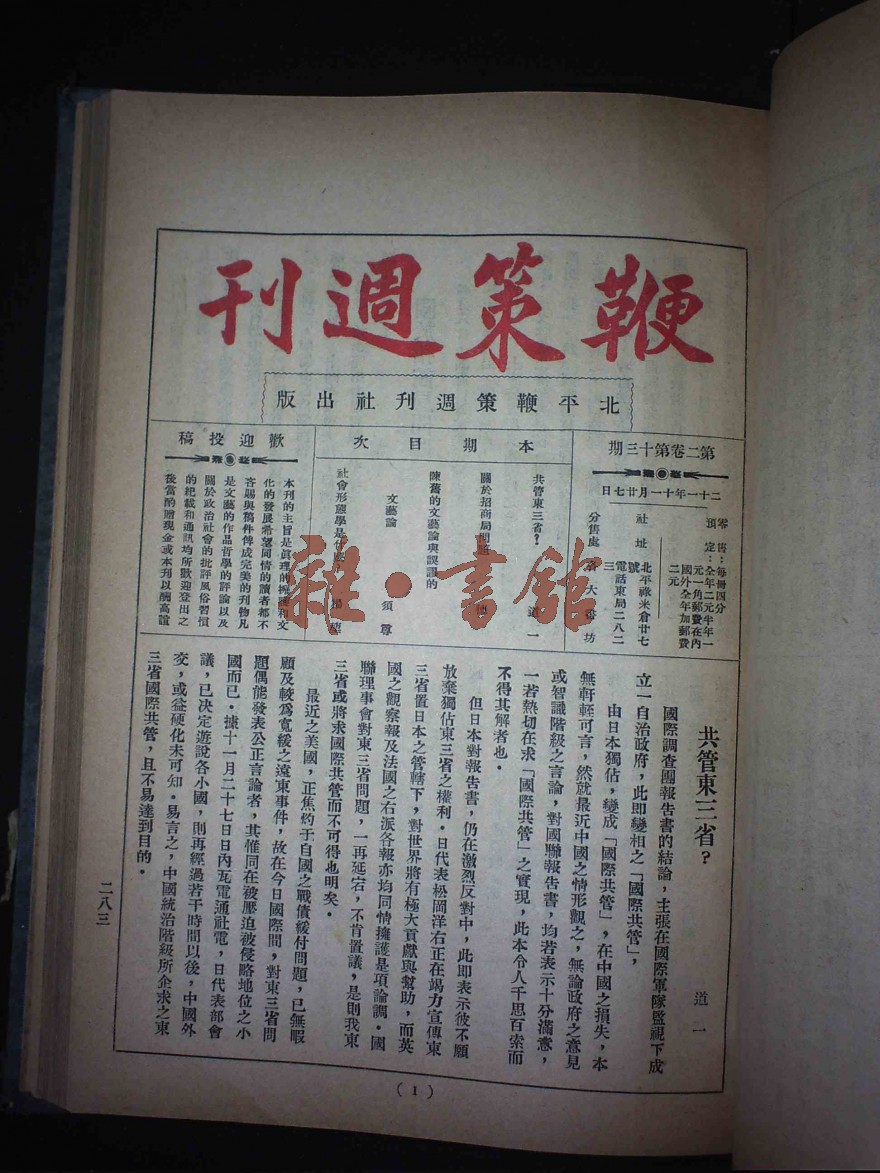 鞭策週刊
北平鞭策週刊社出版
第二卷第十三期
二十一年十一月廿七日
零售：每冊四分
預定：全年二元半年一
元一角郵費在內
國外全年加郵費
二元
社址 北平祿米倉廿七
號
電話東局二八二
三
分售處 各大書坊
本期目次
共管東三省？ 道一
關於招商局問題
陳舊的文藝論與誤謬的
文藝論 須尊
社會形態學是什麼？
歡迎投稿
本刊的主旨是眞理的擁護和文
化的發展希望同情的讀者都不
吝賜與稿件俾成完美的刊物凡
是文藝的作品哲學的評論以及
關於政治社會的批評風俗習慣
的紀載和通訊均所歡迎登出之
後當酌贈現金或本刊以酬高誼
共管東三省？
道一
國際調查團報告書的結論，主張在國際軍隊監視下成
立一自治政府，此即變相之「國際共管」，
由日本獨佔，變成「國際共管」，在中國之損失，本
無軒輊可言，然就最近中國之情形觀之，無論政府之意見
或智識階級之言論，對國聯報告書，均若表示十分滿意，
一若熱切在求「國際共管」之實現，此本令人千思百索而
不得其解者也。
但日本對報告書，仍在激烈反對中，此即表示彼不願
放棄獨佔東三省之權利。日代表松岡洋右正在竭力宣傳東
三省置日本之管轄下，對世界將有極大貢獻與幫助，而英
國之觀察報及法國之右派各報亦均同情擁護是項論調。國
聯理事會對東三省問題，一再延宕，不肯置議，是則我東
三省或將求國際共管而不可得也明矣。
最近之美國，正焦灼于自國之戰債緩付問題，已無暇
顧及較爲寬緩之遠東事件，故在今日國際間，對東三省問
題偶能發表公正言論者，其惟同在被壓迫被侵略地位之小
國而已。據十一月二十七日日內瓦電通社電，日代表部會
議，已決定遊說各小國，則再經過若干時間以後，中國外
交，或益硬化未可知。易言之，中國統治階級所企求之東
三省國際共管，且不易達到目的。
二八三
（1）
雜·書館